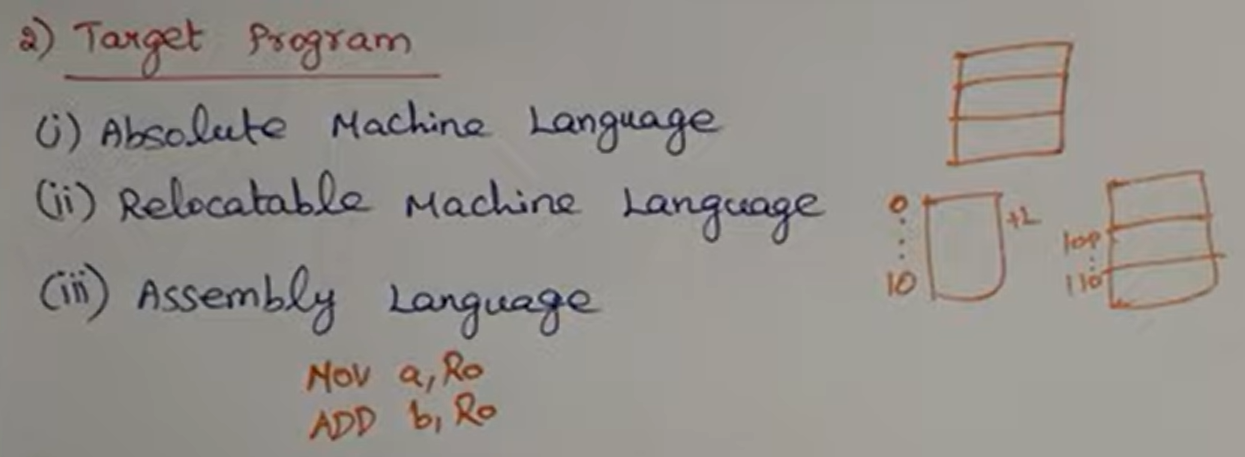 2) Target Program
(i) Absolute Machine Language
(ii) Relocatable Machine Language
(iii) Assembly Language
MOV a, R0
ADD b, R0
0
10
+L
100
110